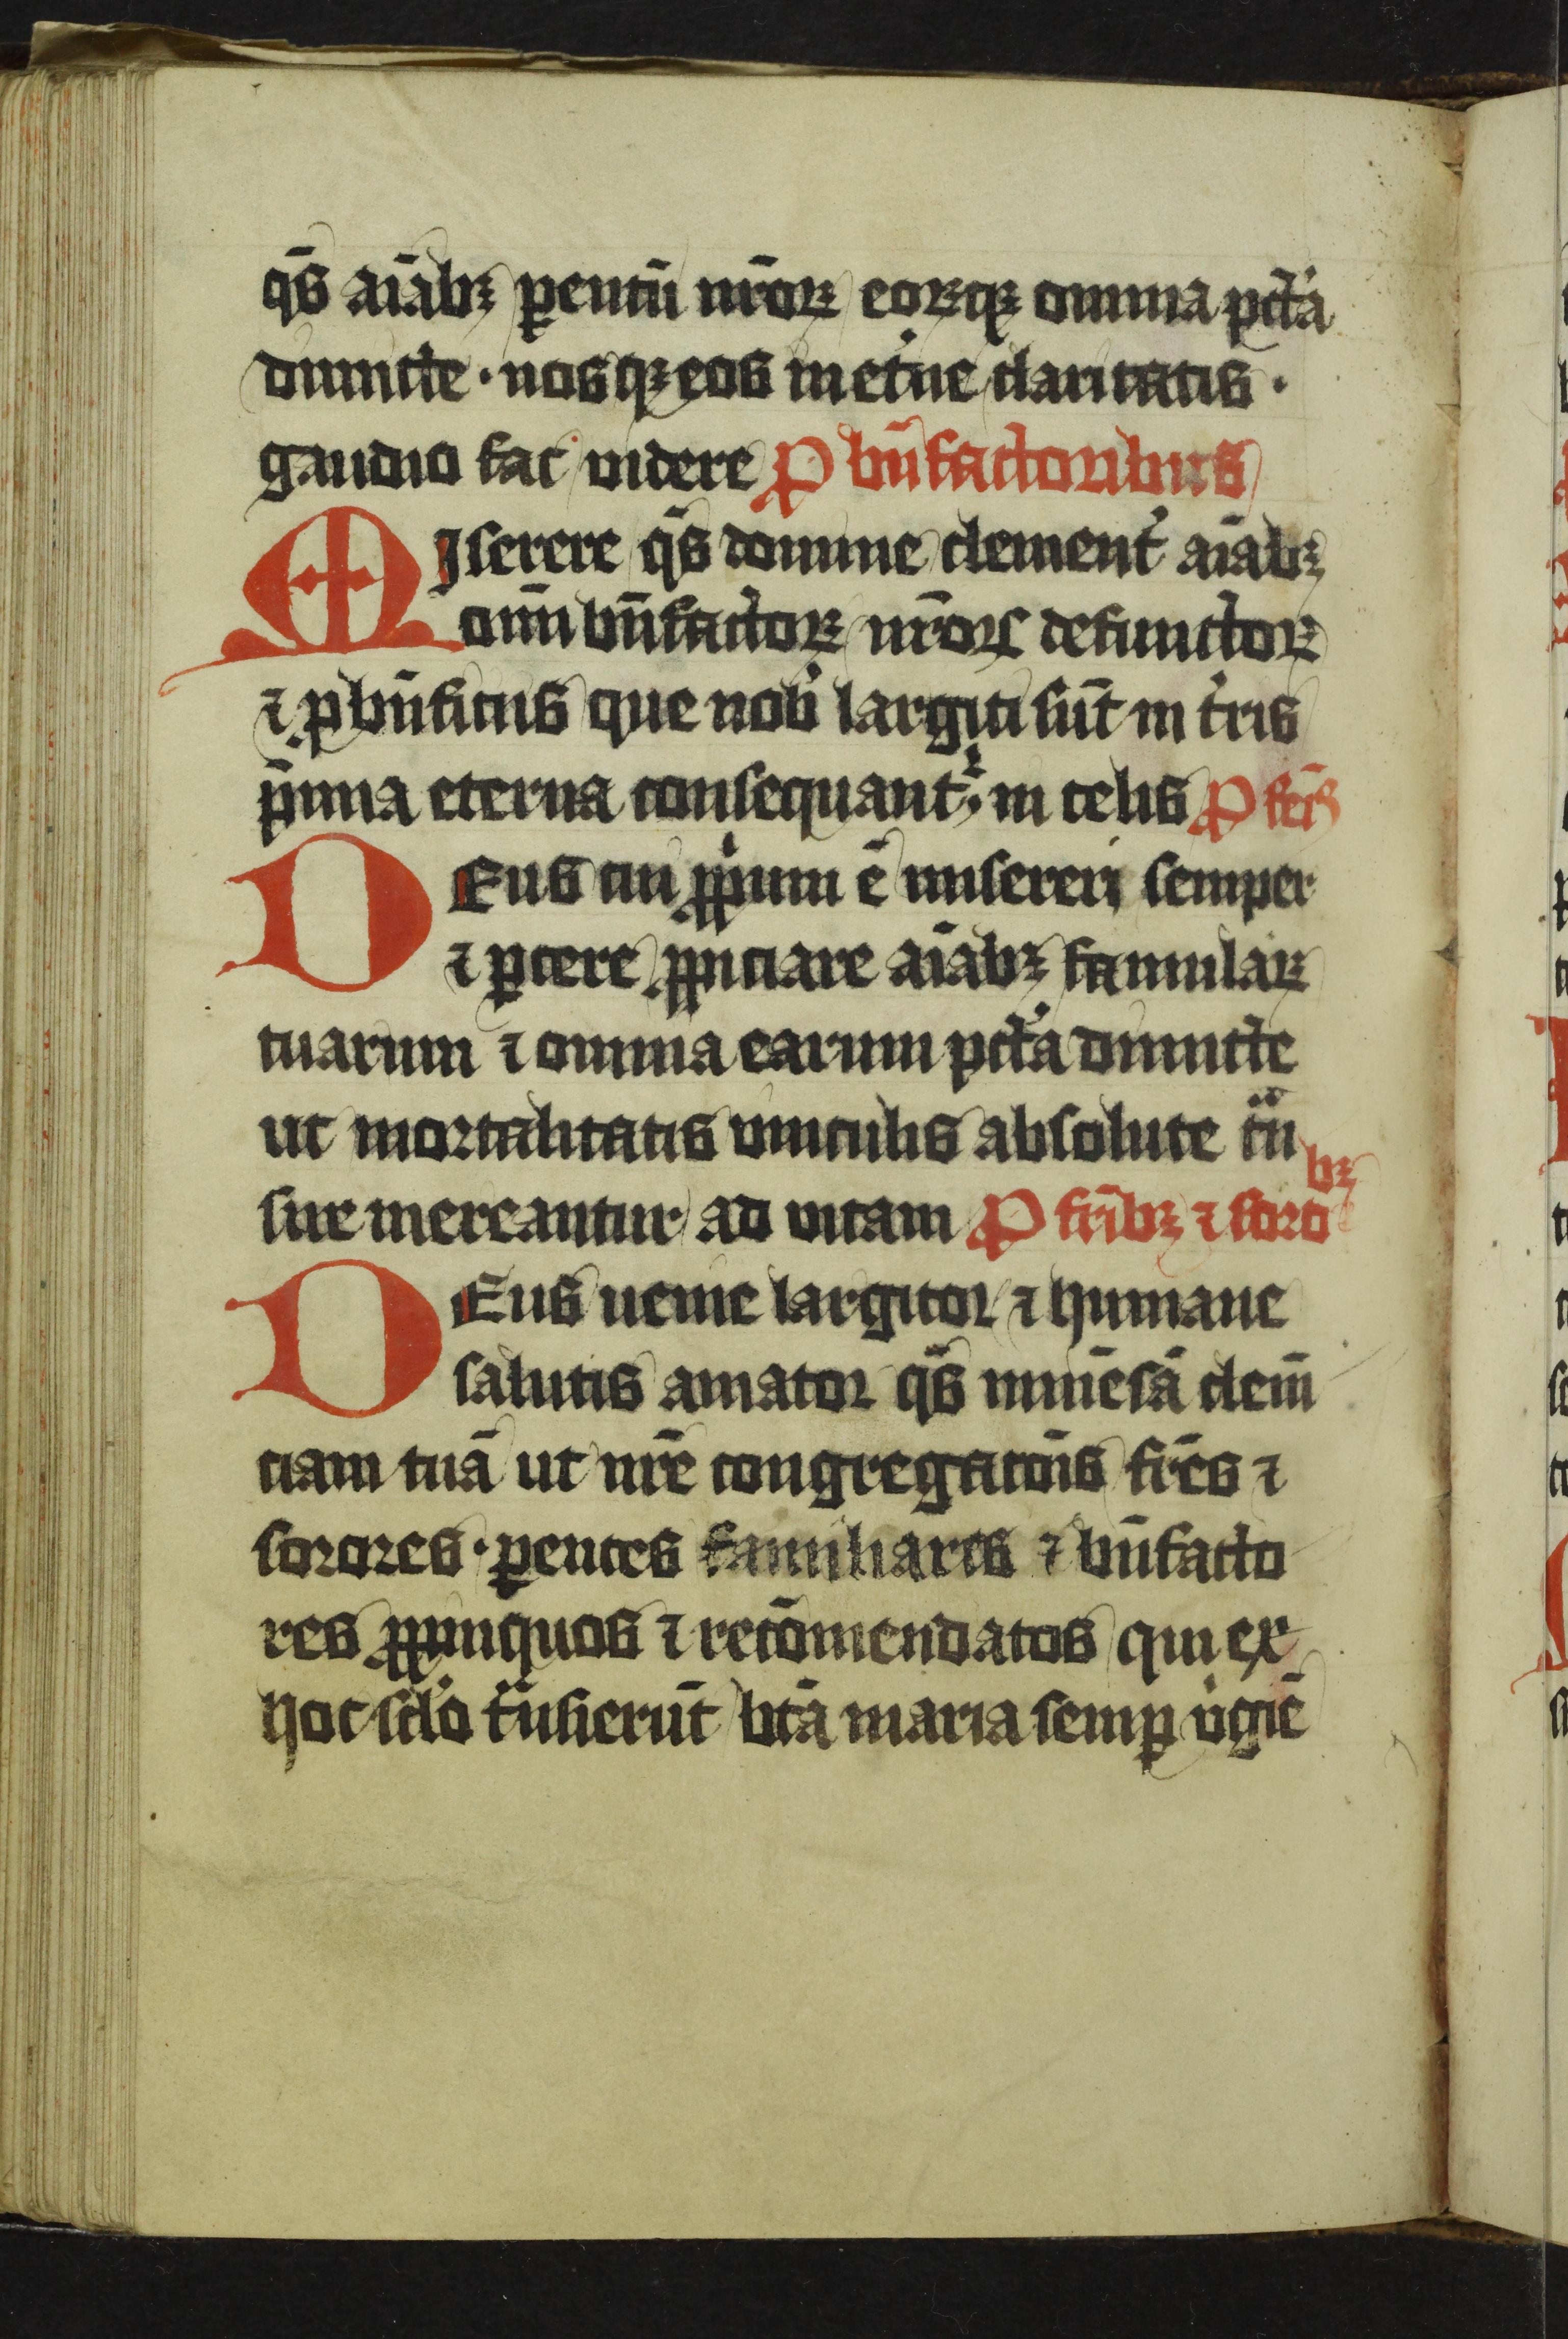 q̄s aīabꝫ ꝑentū nr̄oꝝ eoꝝqꝫ omnia pctā
dimitte · nosqꝫ eos in et̓ne claritatis ·
gaudio fac videre P bn̄factoribus
MIserere q̄s domine clement̓ aīabꝫ
omī bn̄factoꝝ nr̄oꝝ defunctoꝝ
⁊ ꝓ bn̄ficiis que nob̓ largiti sūt in t̓ris
p̄mia eterna consequant᷑ in celis P fe̅i̅s
DEus cui ꝓp̓um ē misereri semper
⁊ ꝑcere ꝓpiciare aīabꝫ famulaꝝ
tuarum ⁊ omnia earum pctā dimitte
ut mortalitatis vinculis absolute t̾n
sire mereantur ad vitam P fr̄ibꝫ ⁊ soro
bꝫ
DEus uenie largitor ⁊ humane
salutis amator q̄s immēsā clem̄
ciam tuā ut nr̄e congregatōis fr̄es ⁊
sorores · ꝑentes familiares ⁊ bn̄facto
res ꝓpinquos ⁊ recōmendatos qui ex
hoc sclō t̾nsierūt btā maria semꝑ v̓giē